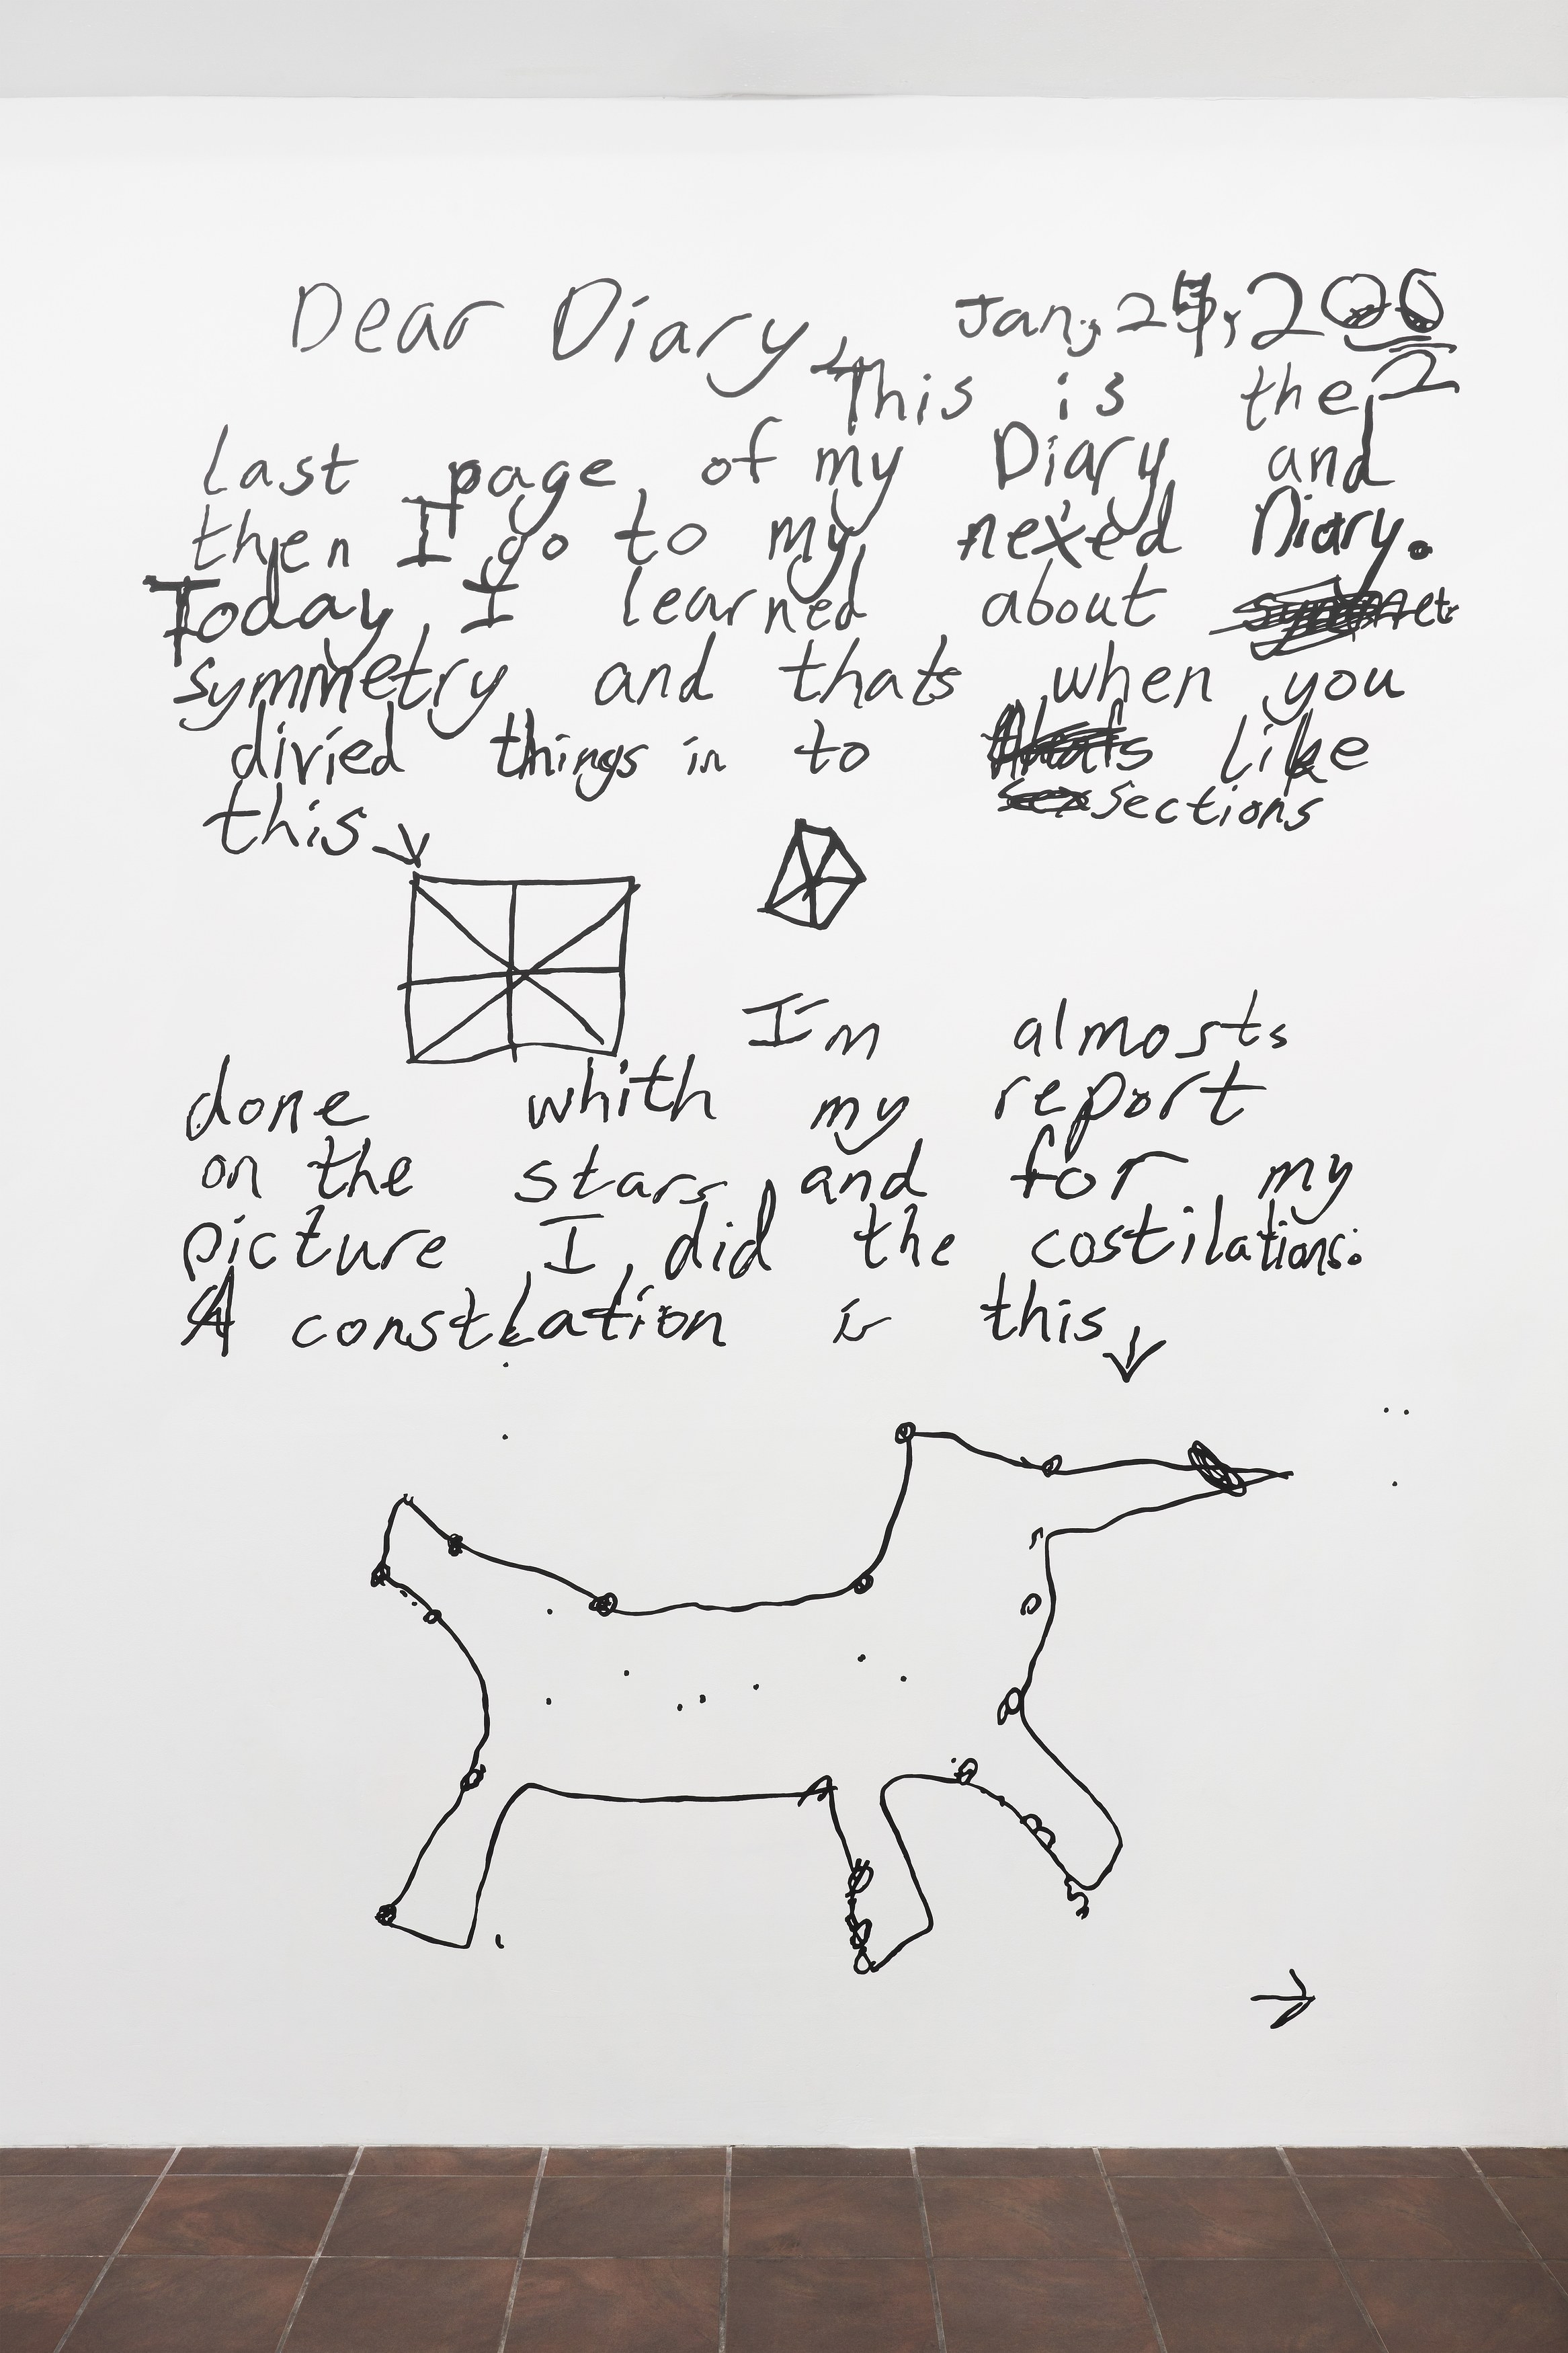 Dear Diary, Jan, 24, 2002
This is the
last page of my Diary and
then I go to my nexed Diary.
Today I learned about
symmetry and thats when you
divied things in to like
sections
this
I'm almosts
done whith my report
on the stars and for my
picture I did the costilations.
A constlation is this